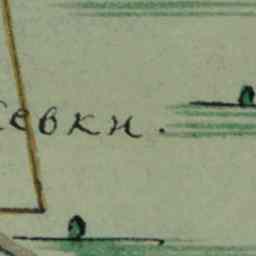 евки.